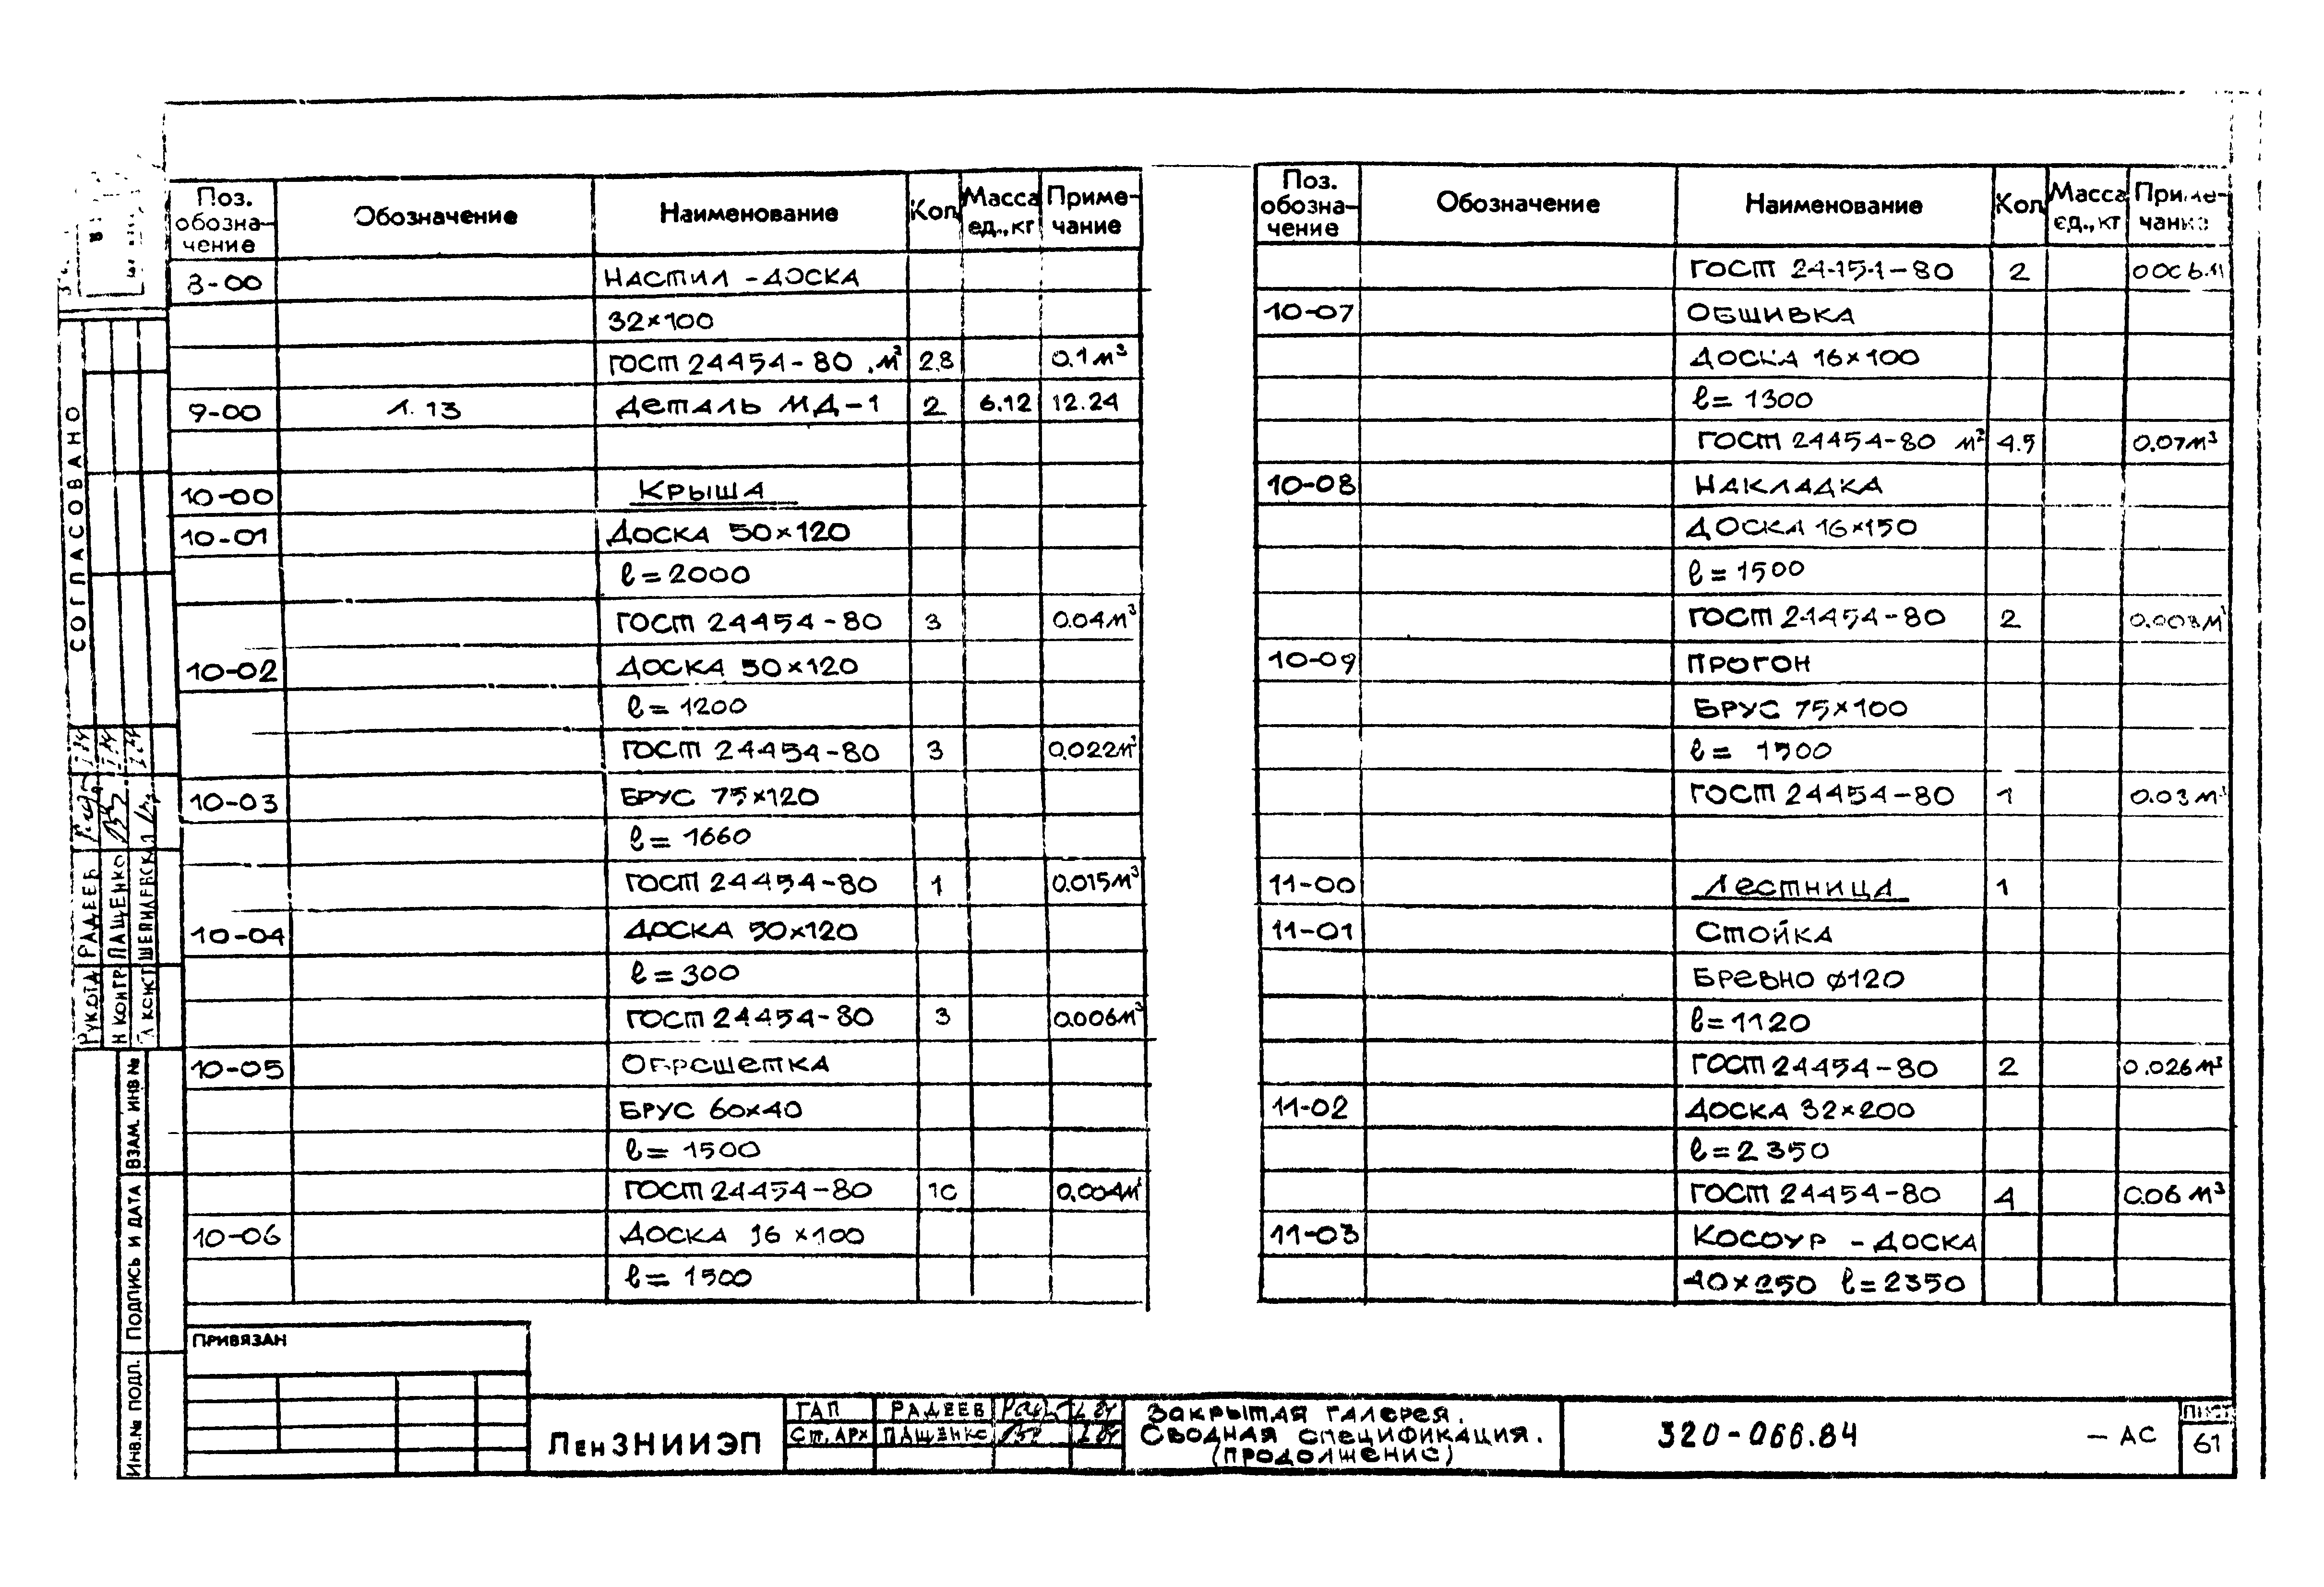 Поз. обозна-чение Обозначение Наименование Кол. Масса ед., кг Приме-чание
8-00 НАСТИЛ - ДОСКА
32×100
ГОСТ 24454-80 . м² 2.8 0.1 м³
9-00 Л. 13 ДЕТАЛЬ МД-1 2 6.12 12.24
10-00 КРЫША
10-01 ДОСКА 50×120
ℓ = 2000
ГОСТ 24454-80 3 0.04 м³
10-02 ДОСКА 50×120
ℓ = 1200
ГОСТ 24454-80 3 0.022 м³
10-03 БРУС 75×120
ℓ = 1660
ГОСТ 24454-80 1 0.015 м³
10-04 ДОСКА 50×120
ℓ = 300
ГОСТ 24454-80 3 0.006 м³
10-05 ОБРЕШЕТКА
БРУС 60×40
ℓ = 1500
ГОСТ 24454-80 10 0.004 м³
10-06 ДОСКА 16×100
ℓ = 1500
Поз. обозна-чение Обозначение Наименование Кол Масса ед., кг Приме-чание
ГОСТ 24454-80 2
10-07 ОБШИВКА
ДОСКА 16×100
ℓ = 1300
ГОСТ 24454-80 м² 4.5 0.07 м³
10-08 НАКЛАДКА
ДОСКА 16×150
ℓ = 1500
ГОСТ 24454-80 2 0.008 м³
10-09 ПРОГОН
БРУС 75×100
ℓ = 1500
ГОСТ 24454-80 1 0.03 м³
11-00 ЛЕСТНИЦА 1
11-01 СТОЙКА
БРЕВНО ø120
ℓ = 1120
ГОСТ 24454-80 2 0.026 м³
11-02 ДОСКА 32×200
ℓ = 2350
ГОСТ 24454-80 4 0.06 м³
11-03 КОСОУР - ДОСКА
40×250 ℓ = 2350
СОГЛАСОВАНО
РУК ОТД РАДЕЕВ
Н КОНТР ПАЩЕНКО
ИНВ.№ ПОДЛ. ПОДПИСЬ И ДАТА ВЗАМ. ИНВ №
ПРИВЯЗАН
ЛенЗНИИЭП
ГАП РАДЕЕВ
Ст. АРХ ПАЩЕНКО
ЗАКРЫТАЯ ГАЛЕРЕЯ.
СВОДНАЯ СПЕЦИФИКАЦИЯ.
(ПРОДОЛЖЕНИЕ)
320-066.84
- АС
ЛИСТ
61